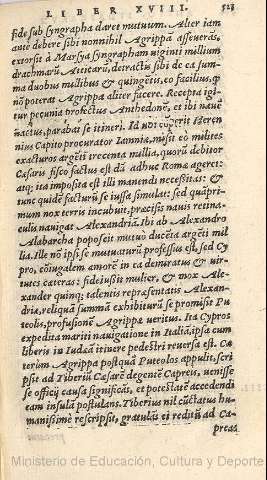 LIBER XVIII. 523
fide sub syngrapha daret mutuum. Alter iam
ante debere sibi nonnihil Agrippã asseuerãs,
extorsit à Marsya syngrapham uiginti millium
drachmarũ Atticarũ, detractis sibi de ea sum-
ma duobus millibus & quingētis, eo facilius, ꝙ
nõ poterat Agrippa aliter facere. Recepta igi-
tur pecunia profectus Anthedonē, et ibi nauē
nactus, parabat se itineri. Id ubi Heren
nius Capito procurator Iamniæ, misit eò milites
exacturos argēti trecenta millia, quorũ debitor
Cæsaris fisco factus est dũ adhuc Romæ ageret:
atq; ita imposita est illi manendi necessitas: &
tunc quidē facturũ se iussa simulat: sed quãpri-
mum nox terris incubuit, præcisis nauis retina-
culis nauigat Alexandriã. Ibi ab Alexandro
Alabarcha poposcit mutuo ducēta argēti mil
lia. Ille nõ ipsi se mutuaturũ professus est, sed Cy
pro, cõiugalem amorē in ea demiratus & uir-
tutes cæteras: fideiussit mulier, & mox Ale-
xander quinq; talentis repræsentatis Alexan-
driæ, reliquã summã exhibiturũ se promisit Pu
teolis, profusionē Agrippæ ueritus. Ita Cypros
expedita mariti nauigatione in Italiã, ipsa cum
liberis in Iudæã itinere pedestri reuersa est. Cæ
terùm Agrippa postquã Puteolos appulit, scri
psit ad Tiberiũ Cæsarē degentē Capreis, uenisse
se officij causa significãs, et potestatē accedendi
eam insulã postulans. Tiberius nil cũctatus hu-
manissimè rescripsit, gratulãs ei reditũ ad Ca-
preas
Ministerio de Educación, Cultura y Deporte